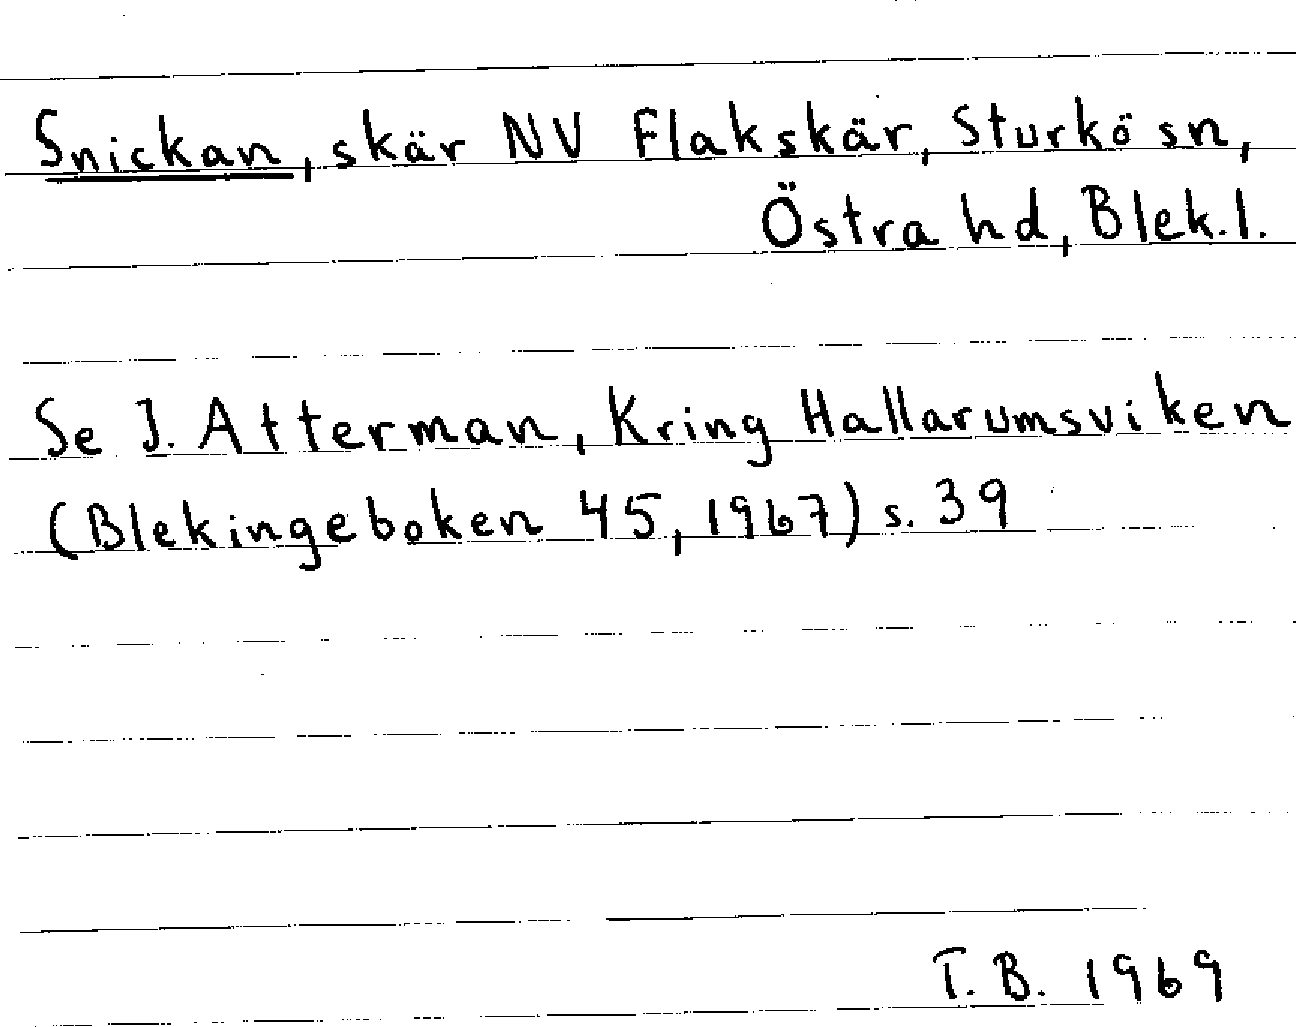 Snickan, skär NV Flakskär, Sturkö sn,
Östra hd, Blek.l.
Se I. Atterman, Kring Hallarumsviken
(Blekingeboken 45, 1967) s. 39
T.B. 1969